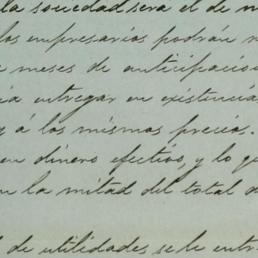 la sociedad será el de m
los empresarios podrán
meses de anticipacion
entregar en existencia
y á los mismos precios.
en dinero efectivo, y lo q
la mitad del total d
de utilidades se le entr